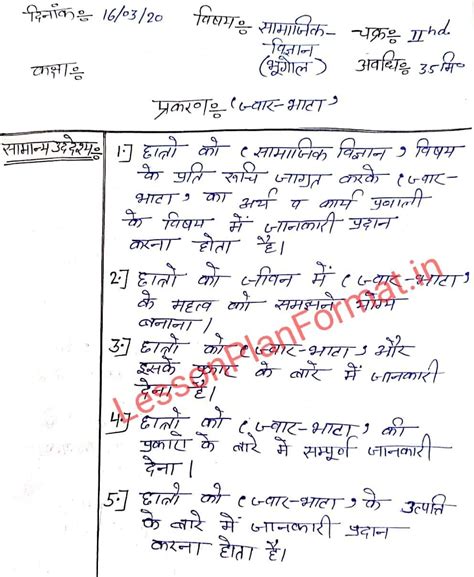 दिनांक:- 16/03/20 विषय:- सामाजिक- चक्र:- IInd.
विज्ञान
कक्षा:- (भूगोल) अवधि:- 35 मि०
प्रकरण:- 'ज्वार-भाटा'
सामान्य उद्देश्य:-
1.] छात्रो को 'सामाजिक विज्ञान' विषय
के प्रति रूचि जाग्रत करके 'ज्वार-
भाटा' का अर्थ व कार्य प्रणाली
के विषय में जानकारी प्रदान
करना होता है।
2.] छात्रो को जीवन में 'ज्वार-भाटा'
के महत्व को समझने योग्य
बनाना।
3.] छात्रो को 'ज्वार-भाटा' और
इसके प्रकार के बारे में जानकारी
देना है।
4.] छात्रो को 'ज्वार-भाटा' की
प्रकारो के बारे में सम्पूर्ण जानकारी
देना।
5.] छात्रो को 'ज्वार-भाटा' के उत्पति
के बारे में जानकारी प्रदान
करना होता है।
LessonPlanFormat.in